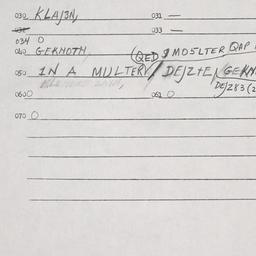 030 KLAJ3N, 031 —
032 033 —
034 0
040 GERMOTH, (QED J MOSLTER QAP
050 IN A MULTERY / DEJZTE, GEKN
DEJZ83 (2
060 0 061 0
070 0